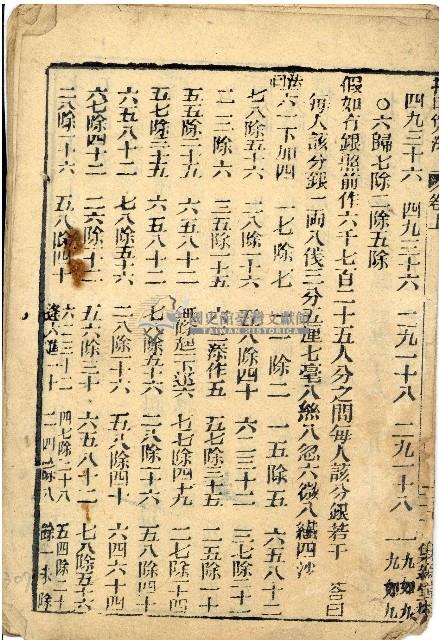 四九三十六 四九三十六 二九一十八 二九一十八 一九如九 一九如九
○六歸七除二除五除
假如有銀照前作六千七百二十五人分之問每人該分銀若干 答曰
每人該分銀一両八錢三分五厘七毫八絲八忽六微八纖四沙
法曰 六一下加四 一七除七 一二除二 一五除五 六五八十二
七八除五十六 二八除一十六 五八除四十 六二三十二
二三除六 三五除一十五 添作五 五七除三十五 二五除一十
五五除二十五 六五八十二 無除起一下還六 七七除四十九 二七除一十四
五七除三十五 六五八十二 七八除五十六 二八除一十六 五八除四十
六五八十二 七八除五十六 二八除一十六 五八除四十 六四六十四
六七除四十二 二六除一十二 五六除三十 六五八十二 七八除五十六
二八除一十六 五八除四十 六二三十二 逢六進一十 四七除二十八 二四除八 五四除二十 餘一未除
國史館臺灣文獻館
TAIWAN HISTORICA